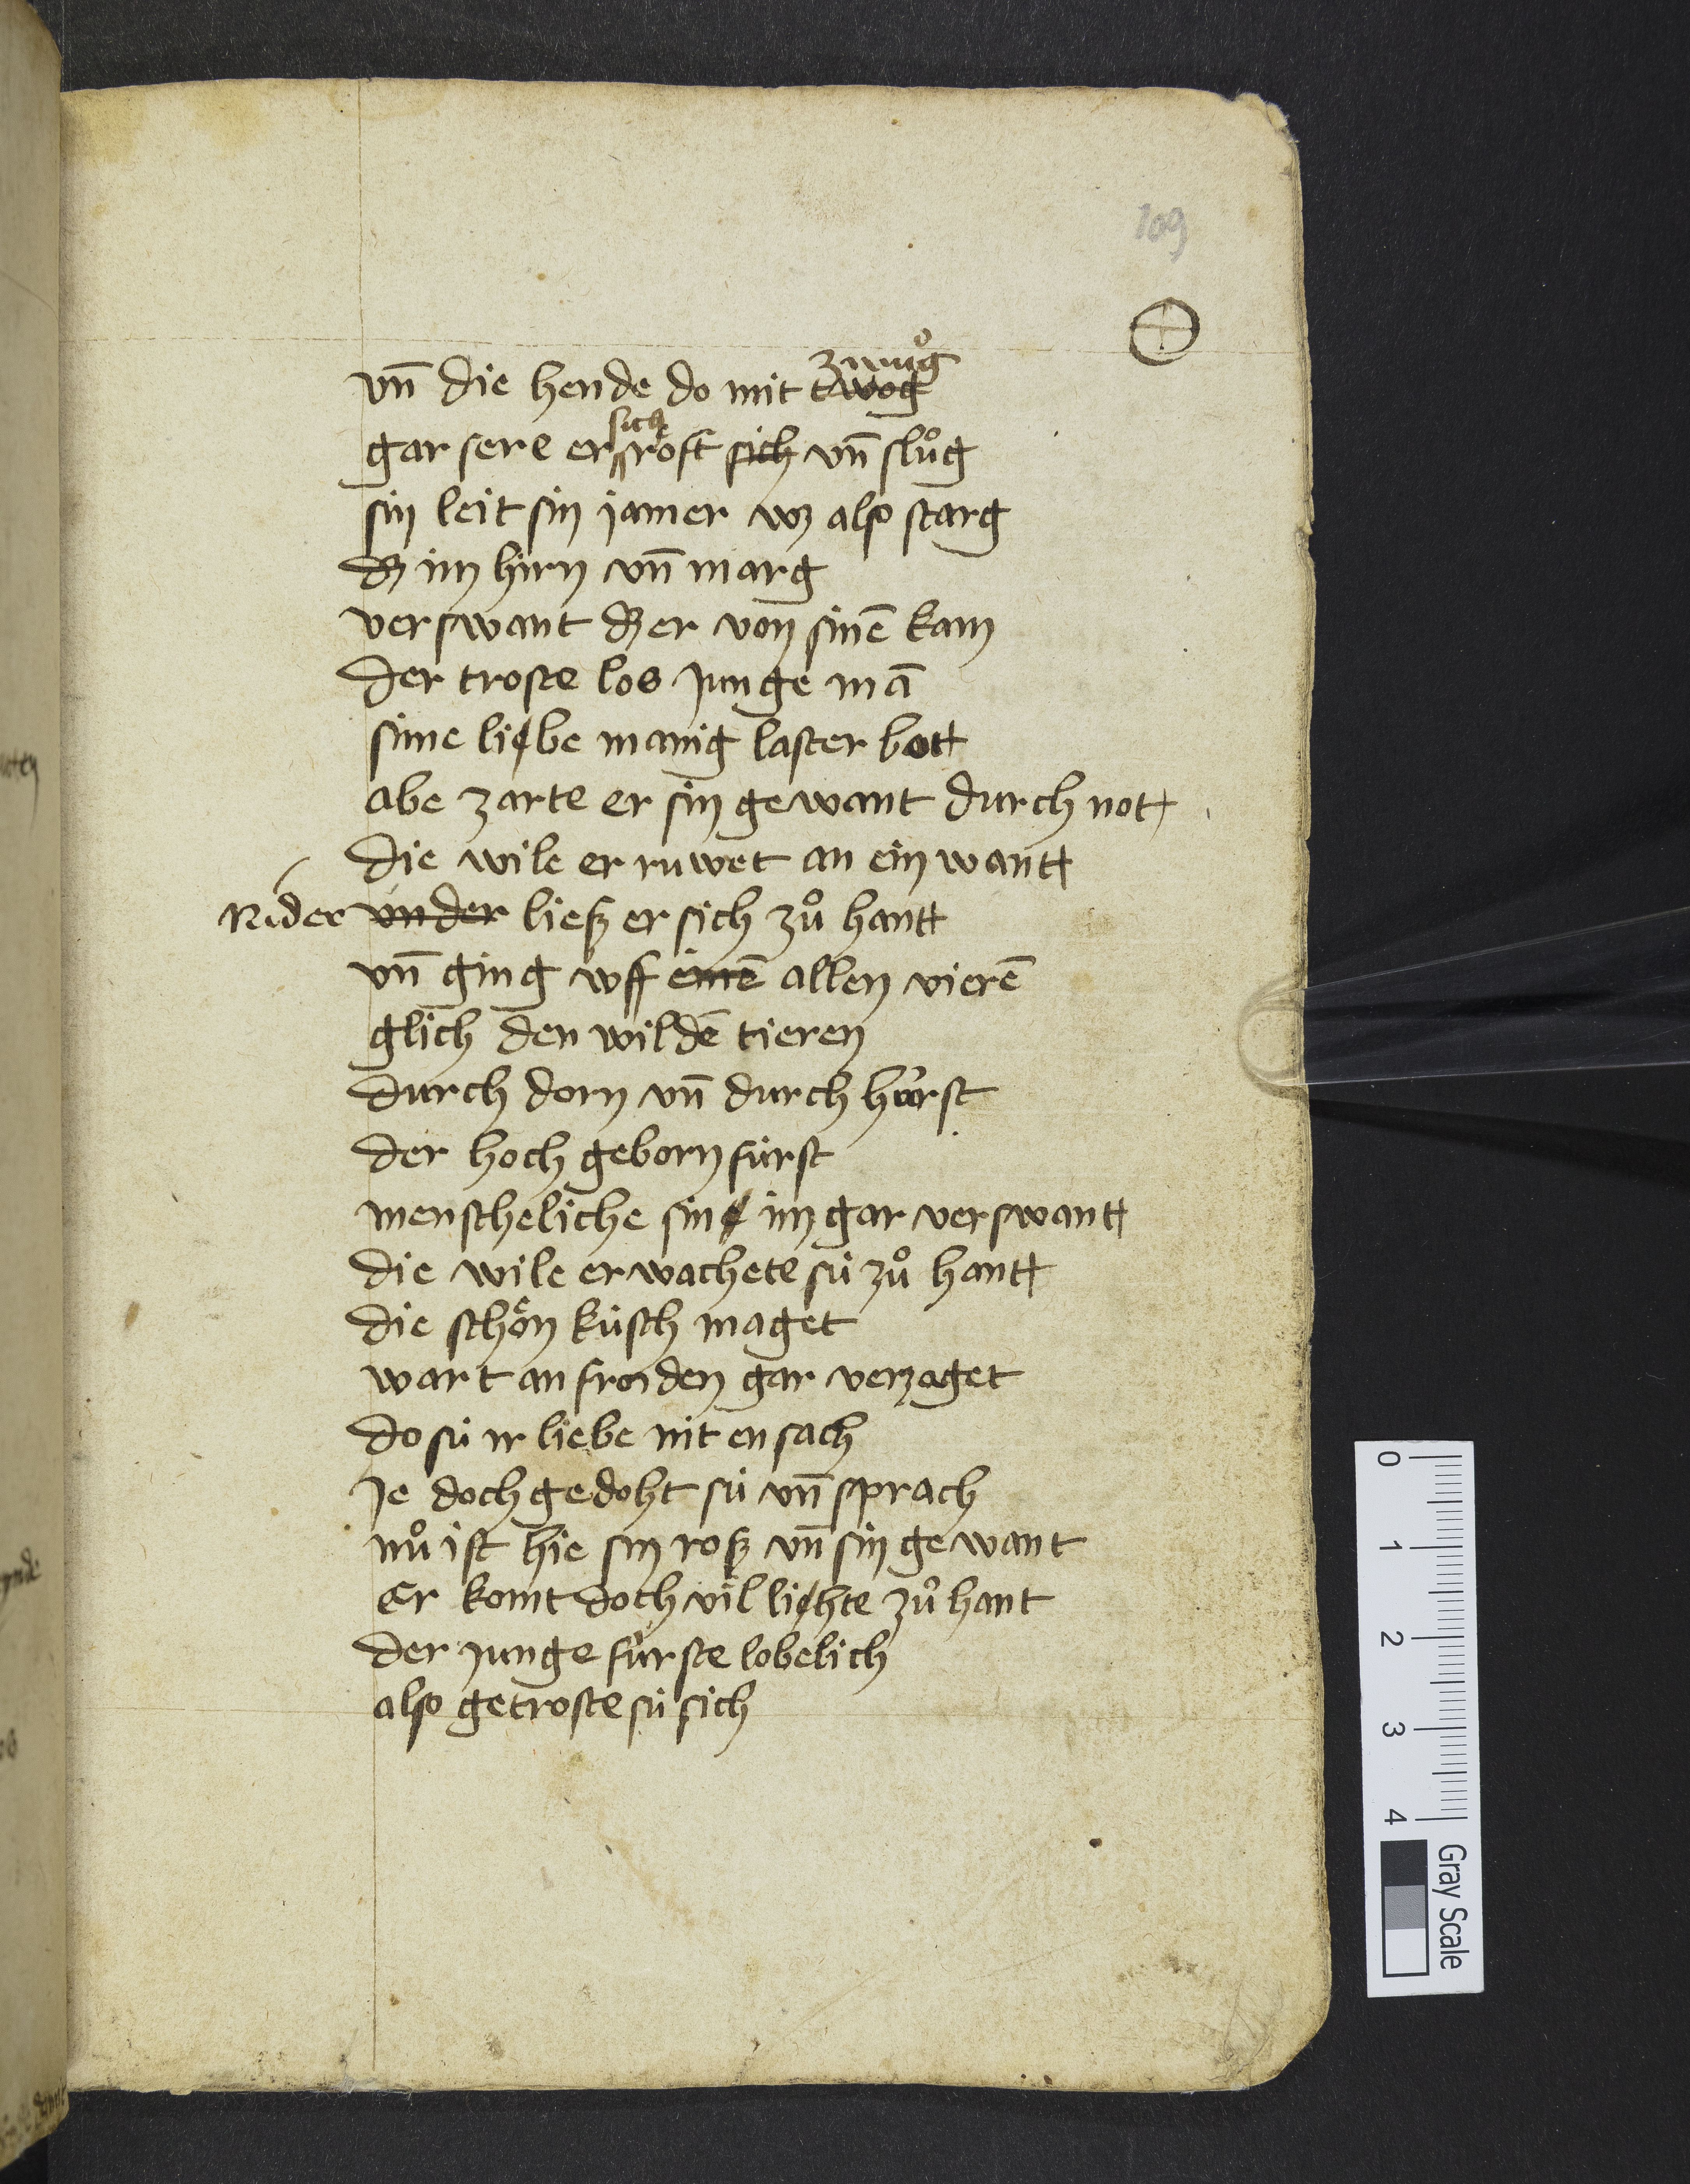 109
vn̄ die hende do mit twog zwuͦg
gar sere er sich roft sich vn̄ sluͦg
sin leit sin jamer wz also starg
dz im hirn vn̄ marg
verswant dz er von sinē kam
der troste los junge mā
sime liebe manig laster bott
abe zarte er sin gewant durch not
die wile er ruwet an ein wantt
Nider vnder ließ er sich zuͦ hantt
vn̄ ging vff einē allen vierē
glich den wildē tieren
durch dorn vn̄ durch hürst
der hoch geborn fürst
menscheliche sine im gar verswantt
die wile erwachete sü zuͦ hantt
die schoͤn küsch maget
wart an froiden gar verzaget
do sü ir liebe nit ensach
je doch gedoht sü vn̄ sprach
nuͦ ist hie sin roß vn̄ sin gewant
Er komt doch vil liehte zuͦ hant
der junge fürste lobelich
also getroste sü sich
0 1 2 3 4
Gray Scale